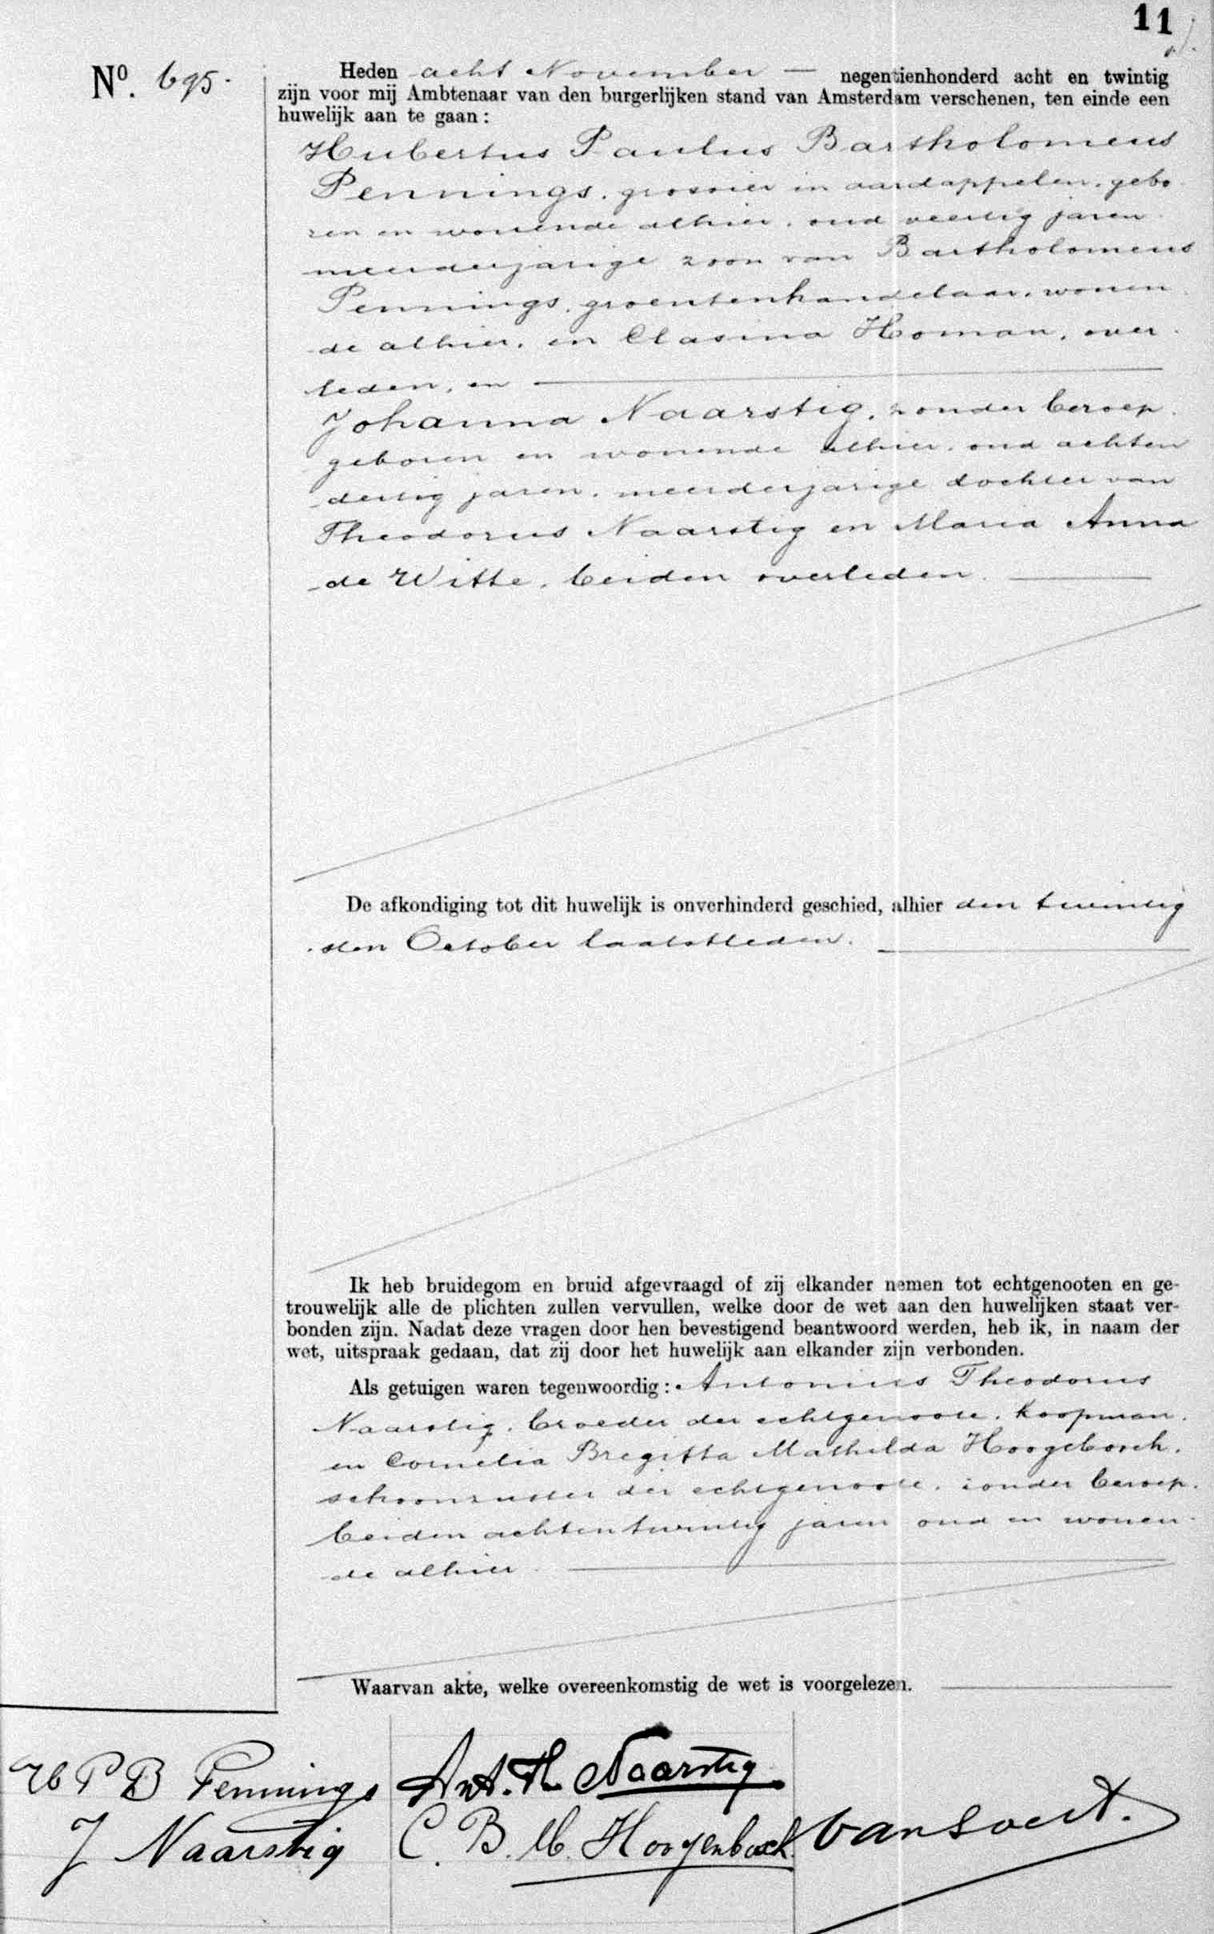 11
Nº. 695.
Heden acht November — negentienhonderd acht en twintig
zijn voor mij Ambtenaar van den burgerlijken stand van Amsterdam verschenen, ten einde een
huwelijk aan te gaan:
Hubertus Paulus Bartholomeus
Pennings, grossier in aardappelen, gebo
ren en wonende alhier, oud veertig jaren
meerderjarige zoon van Bartholomeus
Pennings, groentenhandelaar, wonen
de alhier, en Clasina Homan, over
leden, en
Johanna Naarstig, zonder beroep,
geboren en wonende alhier, oud achten
dertig jaren, meerderjarige dochter van
Theodorus Naarstig en Maria Anna
de Witte, beiden overleden.
De afkondiging tot dit huwelijk is onverhinderd geschied, alhier den twintig
sten October laatstleden.
Ik heb bruidegom en bruid afgevraagd of zij elkander nemen tot echtgenooten en ge-
trouwelijk alle de plichten zullen vervullen, welke door de wet aan den huwelijken staat ver-
bonden zijn. Nadat deze vragen door hen bevestigend beantwoord werden, heb ik, in naam der
wet, uitspraak gedaan, dat zij door het huwelijk aan elkander zijn verbonden.
Als getuigen waren tegenwoordig: Antonius Theodorus
Naarstig, broeder der echtgenoote, koopman,
en Cornelia Bregitta Mathilda Hoogebosch,
schoonzuster der echtgenoote, zonder beroep,
beiden achtentwintig jaren oud en wonen-
de alhier.
Waarvan akte, welke overeenkomstig de wet is voorgelezen.
H P B Pennings
J Naarstig
Ant. Th Naarstig
C. B. M. Hoogenbosch
van Soest.